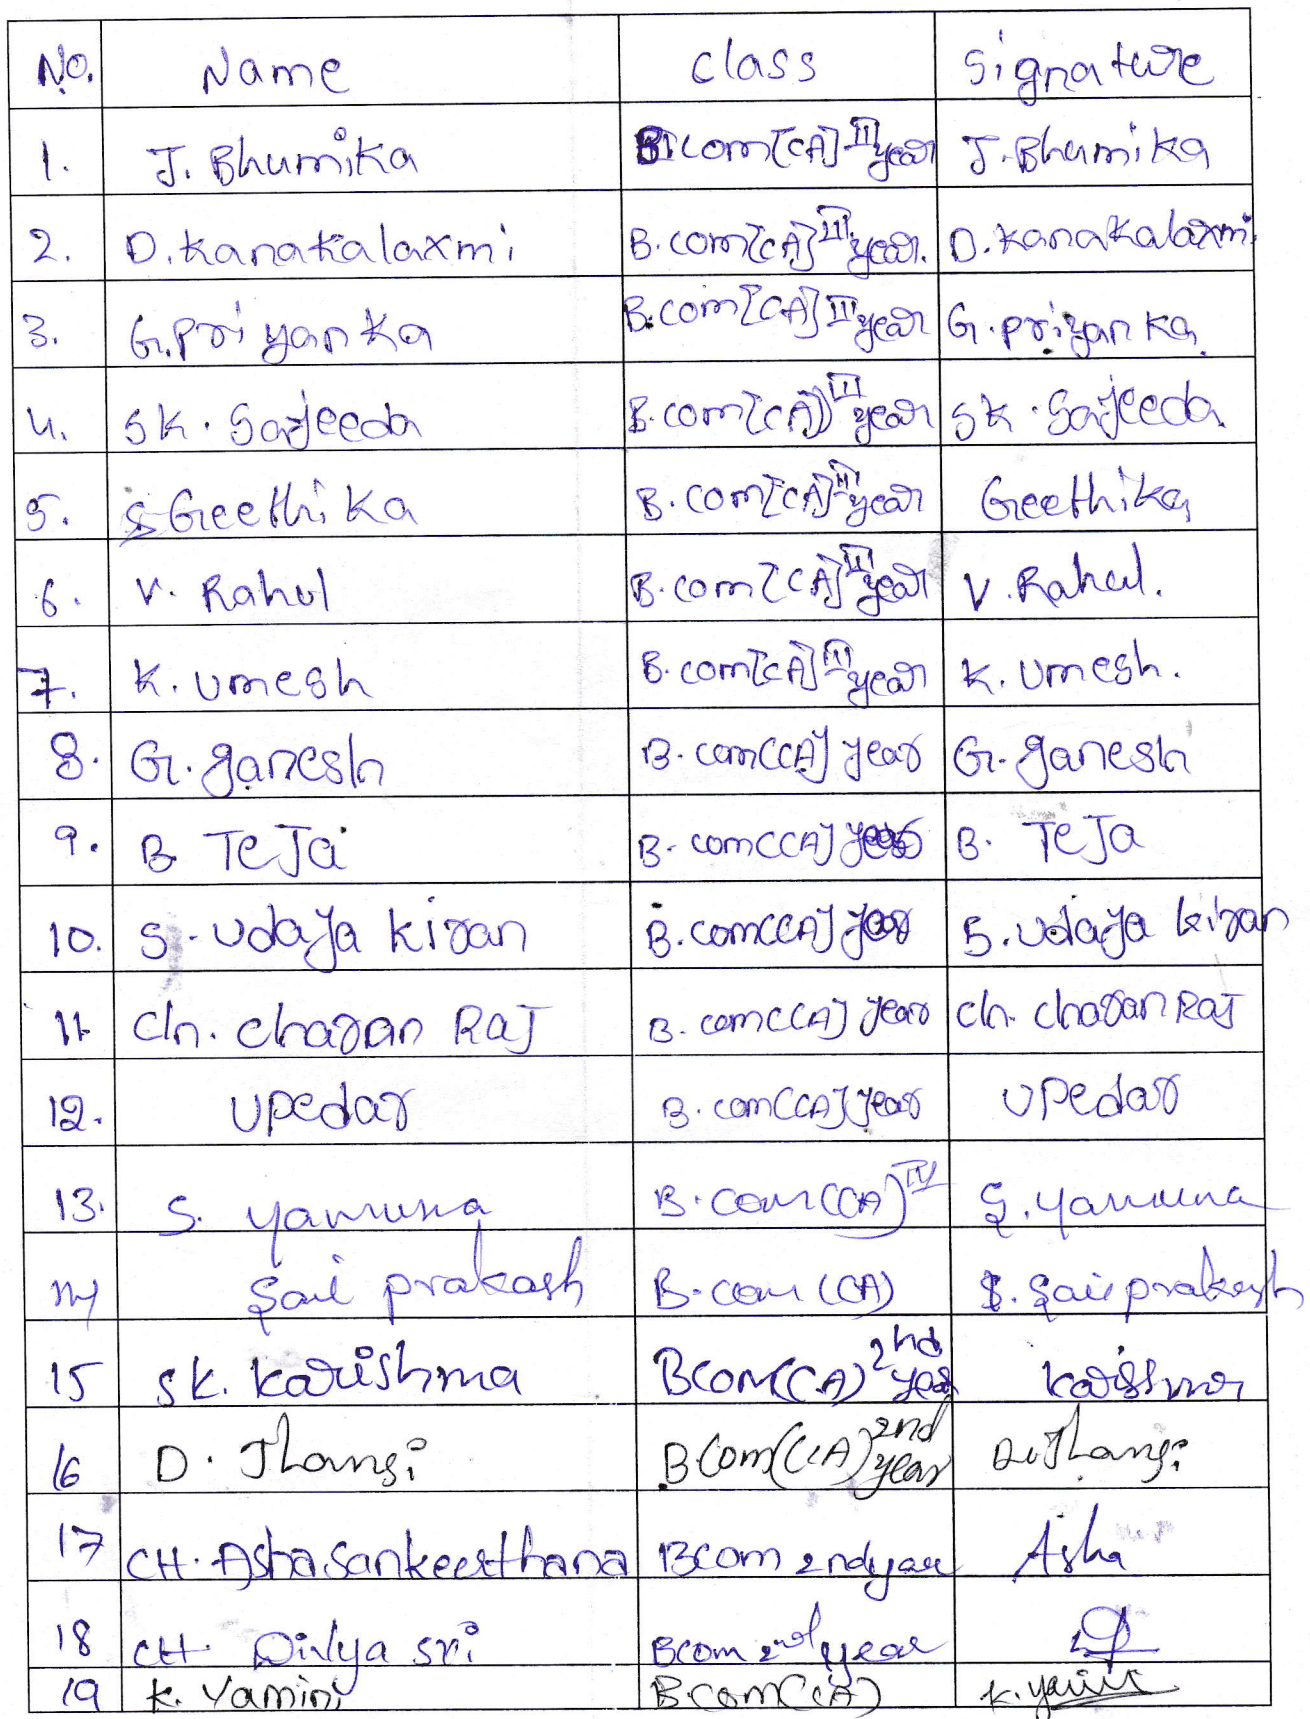 No. Name class Signature
1. J. Bhumika B.com[CA] III year J. Bhumika
2. D. kanakalaxmi B.com[CA] III year. D. kanakalaxmi.
3. G. Priyanka B.com[CA] III year G. priyanka.
4. SK. Sajeeda B.com[CA] III year SK. Sajeeda.
5. S Geethika B.com[CA] III year Geethika
6. V. Rahul B.com[CA] III year V. Rahul.
7. K. Umesh B.com[CA] III year K. Umesh.
8. G. ganesh B.com(CA] year G. ganesh
9. B TeJa B.com(CA] year B. TeJa
10. S. Udaya kiran B.com(CA] year S. Udaya kiran
11. Ch. charan RaJ B.com(CA] year Ch. charan RaJ
12. Upedar B.com(CA] year Upedar
13. S. yamuna B.com(CA) IV S. yamuna
14 Sai prakash B.com (CA) S. Sai prakash
15 SK. Karishma BCOM(CA) 2nd year Karishma
16 D. Jhansi B.Com(CA) 2nd year D. Jhansi
17 CH. Asha Sankeerthana Bcom 2nd year Asha
18 CH. Divya sri Bcom 2nd year
19 K. Yamini B.com(CA) K. Yamini